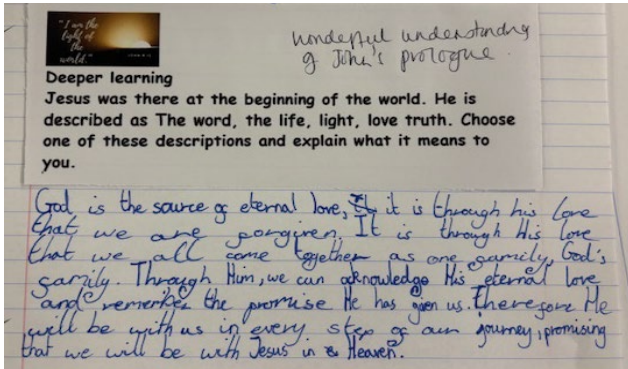 "I am the
light of
the
world."
wonderful understanding
of John's prologue.
Deeper learning
Jesus was there at the beginning of the world. He is
described as The word, the life, light, love truth. Choose
one of these descriptions and explain what it means to
you.
God is the source of eternal love, it is through his love
that we are forgiven. It is through His love
that we all come together as one family, God's
family. Through Him, we can acknowledge His eternal love
and remember the promise He has given us. Therefore He
will be with us in every step of our journey, promising
that we will be with Jesus in Heaven.